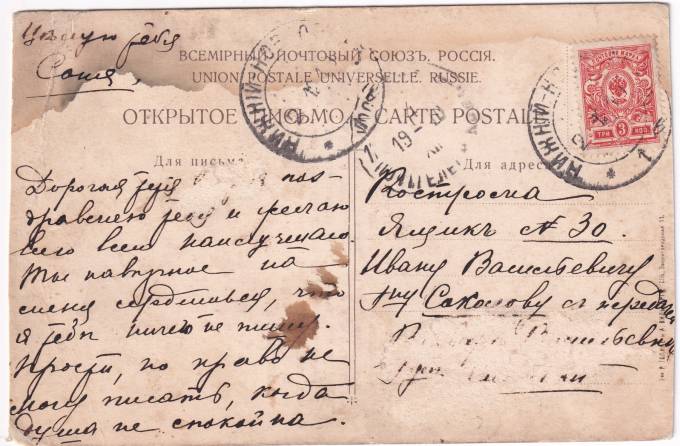 Цѣлую тебя
Саша,
ВСЕМІРНЫЙ ПОЧТОВЫЙ СОЮЗЪ. РОССІЯ.
UNION POSTALE UNIVERSELLE. RUSSIE.
ОТКРЫТОЕ ПИСЬМО. CARTE POSTALE
Для письма
Для адреса
НИЖНІЙ-НОВ
НИЖНІЙ-Н
ПОЧТОВАЯ МАРКА
ТРИ 3 КОП
Дорогая поз-
дравляю тебя и желаю
всего всего наилучшаго
Ты навѣрное на
меня сердишься, что
я тебѣ ничего не пишу.
Прости, но право не
могу писать, когда
душа не спокойна.
Кострома
Ящикъ № 30.
Ивану Васильевичу
Гну Соколову съ передачей